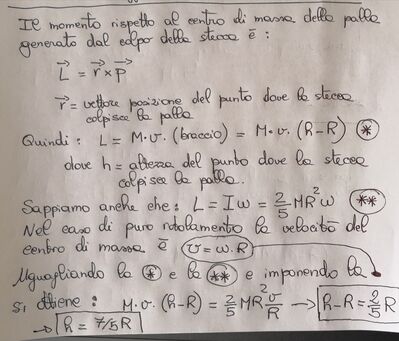 Il momento rispetto al centro di massa della palla
generato dal colpo della stecca è :
L⃗ = r⃗ × p⃗
r⃗ = vettore posizione del punto dove la stecca
colpisce la palla
Quindi : L = M·v·(braccio) = M·v·(h-R) (*)
dove h = altezza del punto dove la stecca
colpisce la palla.
Sappiamo anche che : L = Iω = 2/5 MR²ω (**)
Nel caso di puro rotolamento la velocità del
centro di massa è v = ω·R
Uguagliando la (*) e la (**) e imponendo la
si ottiene : M·v·(h-R) = 2/5 MR² v/R → h-R = 2/5 R
→ h = 7/5 R